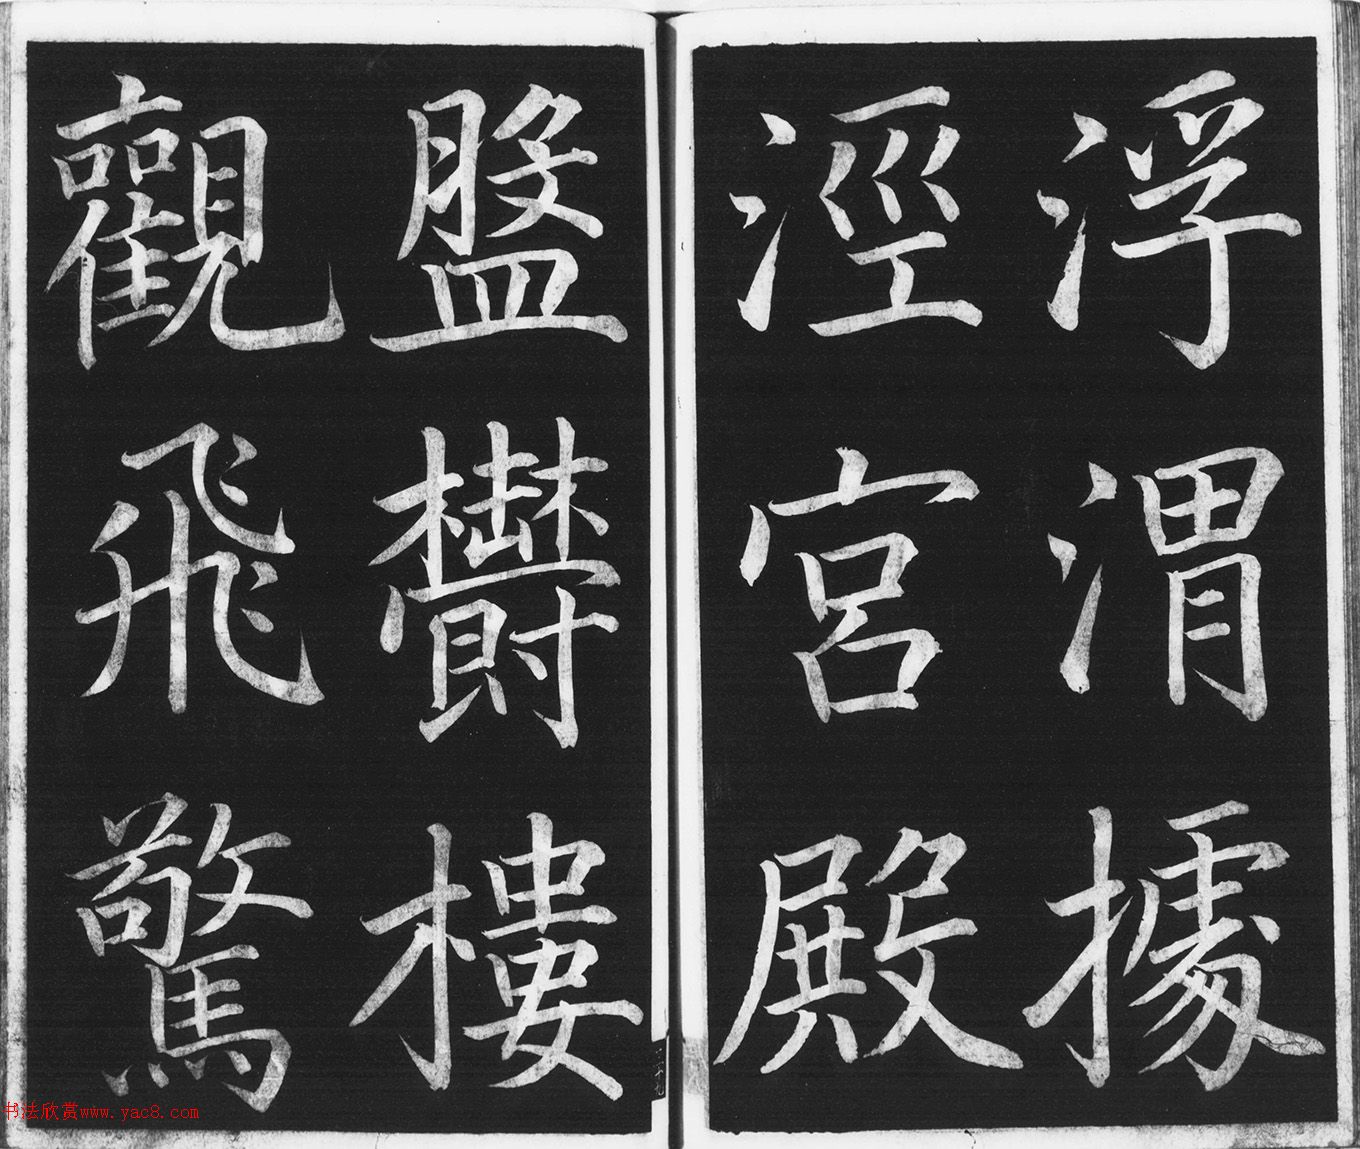 浮渭據
涇宮殿
盤欝樓
觀飛驚
書法欣赏www.yac8.com